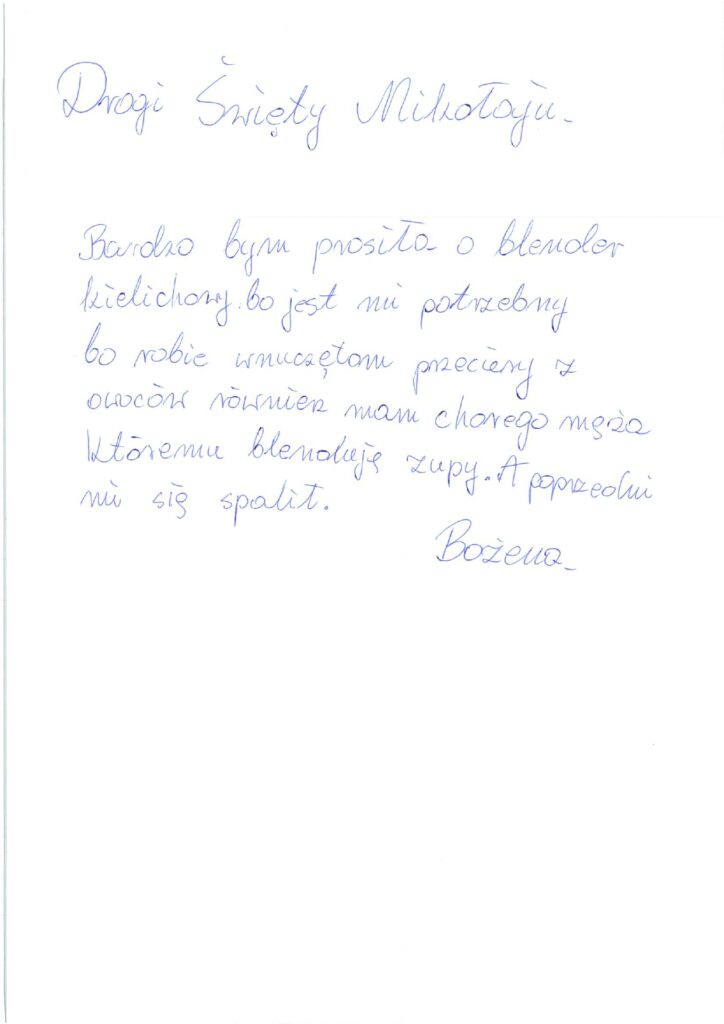 Drogi Święty Mikołaju.
Bardzo bym prosiła o blender
kielichowy. bo jest mi potrzebny
bo robie wnuczętom przeciery z
owoców równierz mam chorego męża
któremu blenduję zupy. A poprzedni
mi się spalit.
Bożena